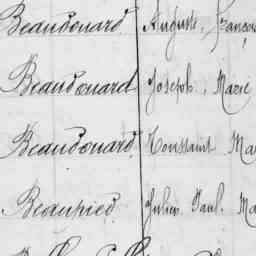 Beaudouard Auguste, François
Beaudouard Joseph, Marie
Beaudouard Toussaint Ma
Beaupied Julien Paul Ma